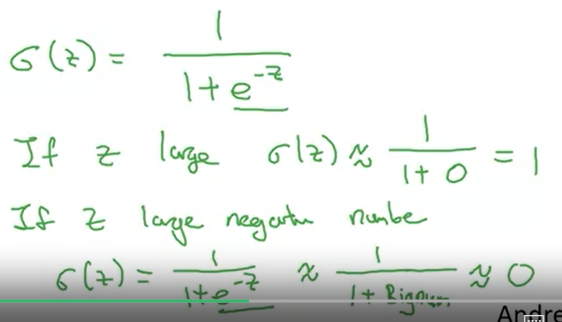 σ(z) = 1 / (1 + e^-z)
If z large σ(z) ≈ 1 / (1 + 0) = 1
If z large negative number
σ(z) = 1 / (1 + e^-z) ≈ 1 / (1 + Bignum) ≈ 0
Andre